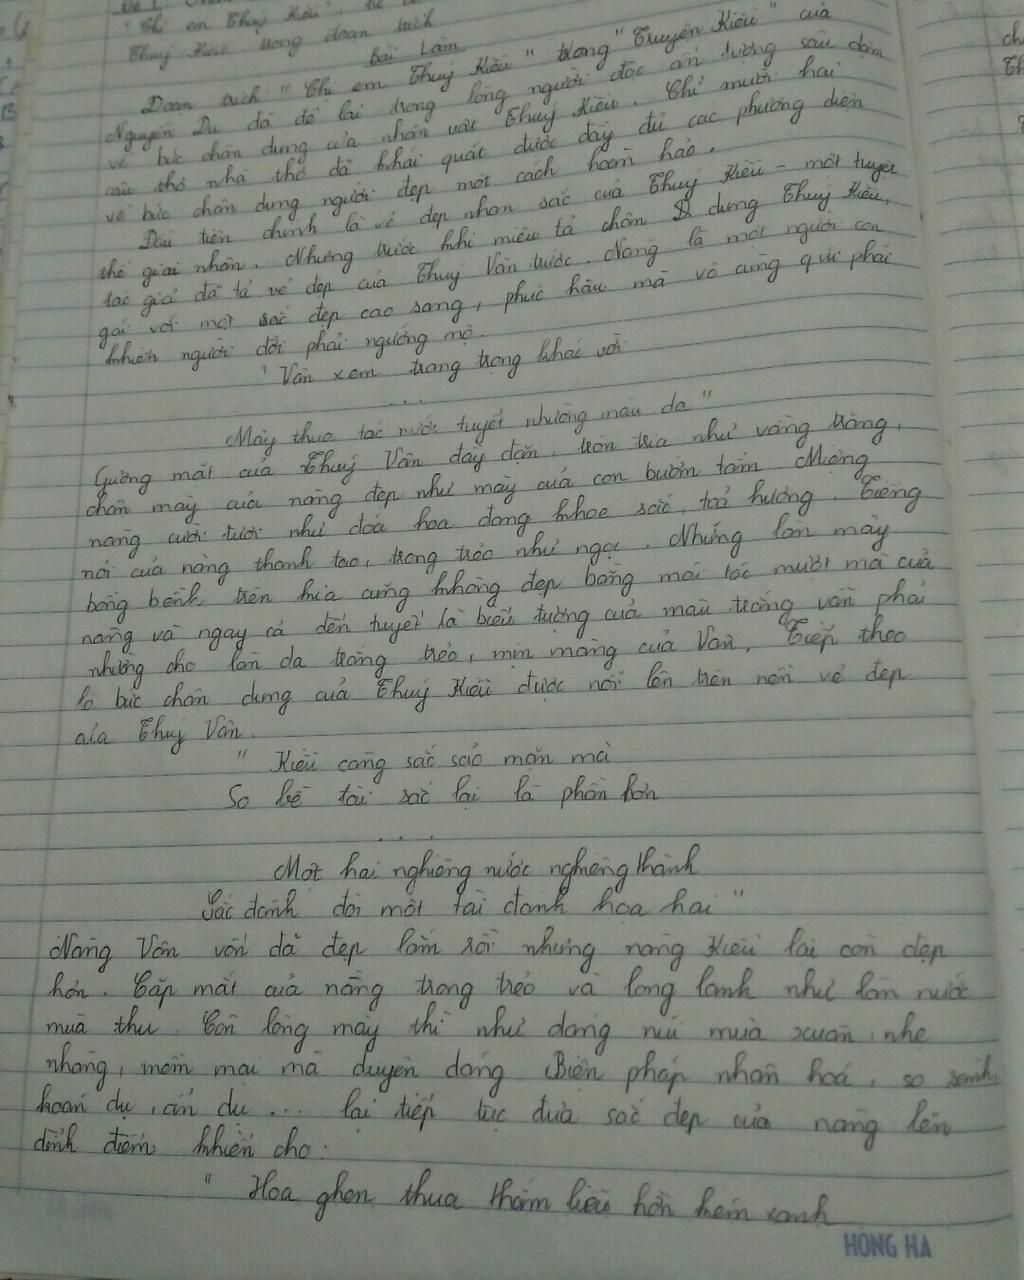 "Chị em Thuý Kiều",
Thuý Kiều trong đoạn trích
Bài Làm
Đoạn trích "Chị em Thuý Kiều" trong "Truyện Kiều" của
Nguyễn Du đã để lại trong lòng người đọc ấn tượng sâu đậm
về bức chân dung của nhân vật Thuý Kiều. Chỉ mười hai
câu thơ nhà thơ đã khái quát được đầy đủ các phương diện
về bức chân dung người đẹp một cách hoàn hảo.
Đầu tiên chính là vẻ đẹp nhan sắc của Thuý Kiều - một tuyệt
thế giai nhân. Nhưng trước khi miêu tả chân dung Thuý Kiều,
tác giả đã tả vẻ đẹp của Thuý Vân trước. Nàng là một người con
gái với một sắc đẹp cao sang, phúc hậu mà vô cùng quí phái
khiến người đời phải ngưỡng mộ.
"Vân xem trang trọng khác vời
...
Mây thua tóc nước tuyết nhường màu da"
Gương mặt của Thuý Vân đầy đặn, tròn trịa như vầng trăng,
chân mày của nàng đẹp như mày của con bướm tằm. Miệng
nàng cười tươi như đoá hoa đang khoe sắc, toả hương. Tiếng
nói của nàng thanh tao, trong trẻo như ngọc. Những làn mây
bồng bềnh trên kia cũng không đẹp bằng mái tóc mượt mà của
nàng và ngay cả đến tuyết là biểu tượng của màu trắng vẫn phải
nhường cho làn da trắng trẻo, mịn màng của Vân. Tiếp theo
là bức chân dung của Thuý Kiều được nổi lên trên nền vẻ đẹp
của Thuý Vân.
" Kiều càng sắc sảo mặn mà
So bề tài sắc lại là phần hơn
...
Một hai nghiêng nước nghiêng thành
Sắc đành đòi một tài đành hoạ hai"
Nàng Vân vốn đã đẹp lắm rồi nhưng nàng Kiều lại còn đẹp
hơn. Cặp mắt của nàng trong trẻo và long lanh như làn nước
mùa thu. Còn lông mày thì như dáng núi mùa xuân, nhẹ
nhàng, mềm mại mà duyên dáng. Biện pháp nhân hoá, so sánh,
hoán dụ, ẩn dụ... lại tiếp tục đưa sắc đẹp của nàng lên
đỉnh điểm khiến cho:
" Hoa ghen thua thắm liễu hờn kém xanh
HONG HA